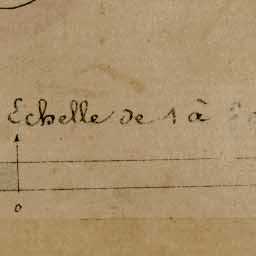 Echelle de 1 à
0